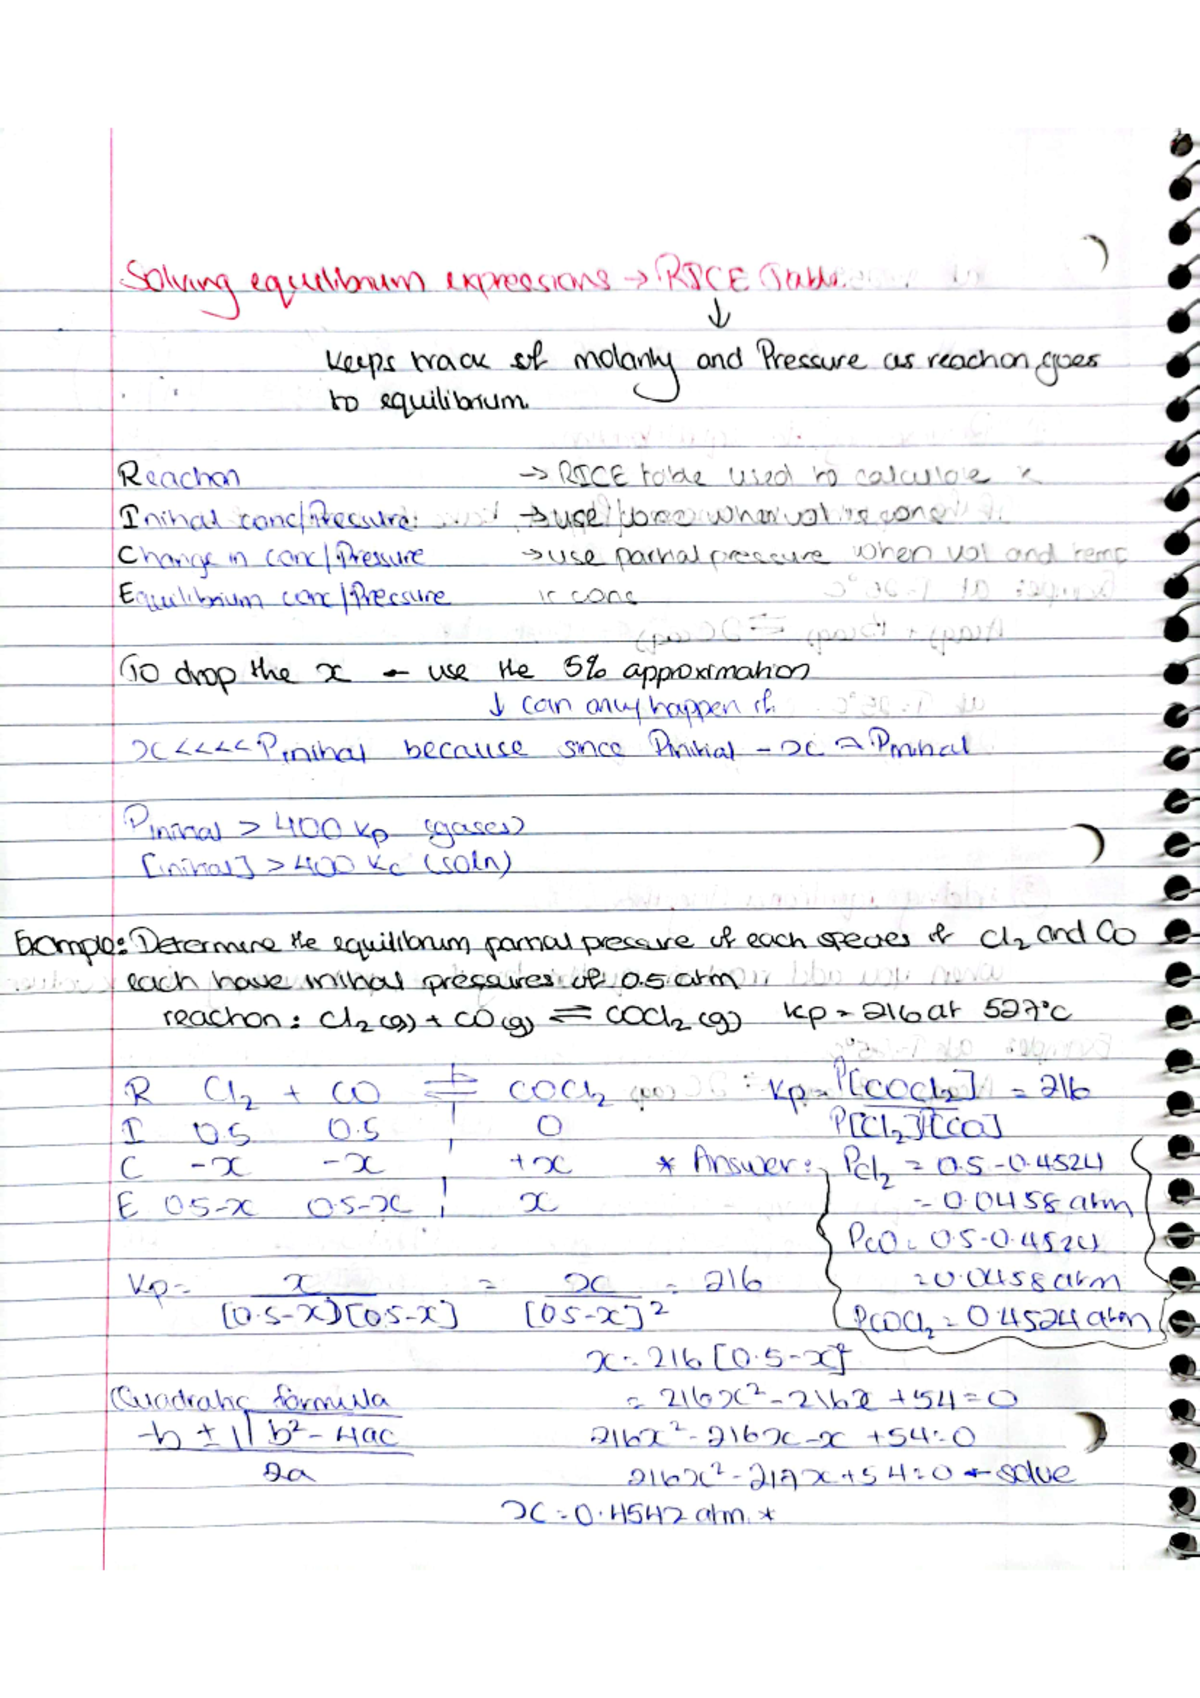 Solving equilibrium expressions → RICE Table.
↓
Keeps track of molarity and Pressure as reaction goes
to equilibrium.
Reaction → RICE table used to calculate x
Initial conc/Pressure → use conc when vol is cons
Change in conc/Pressure → use partial pressure when vol and temp
Equilibrium conc/Pressure is cons
To drop the x - use the 5% approximation
↓ can only happen if
x <<<< Pinitial because since Pinitial - x ≈ Pinitial
Pinitial > 400 Kp (gases)
[initial] > 400 Kc (soln)
Example: Determine the equilibrium partial pressure of each species if Cl2 and CO
each have initial pressures of 0.5 atm
reaction: Cl2(g) + CO(g) ⇌ COCl2(g) Kp = 216 at 527°C
R Cl2 + CO ⇌ COCl2 Kp = P[COCl2] = 216
I 0.5 0.5 0 P[Cl2][CO]
C -x -x +x * Answer: PCl2 = 0.5-0.4524
E 0.5-x 0.5-x x = 0.0458 atm
PCO = 0.5-0.4524
Kp = x = x = 216 = 0.0458 atm
[0.5-x][0.5-x] [0.5-x]2 PCOCl2 = 0.4524 atm
x = 216 [0.5-x]2
Quadratic formula = 216x2 - 216x + 54 = 0
-b ± √b2-4ac 216x2 - 216x - x + 54 = 0
2a 216x2 - 217x + 54 = 0 ← solve
x = 0.4542 atm. *